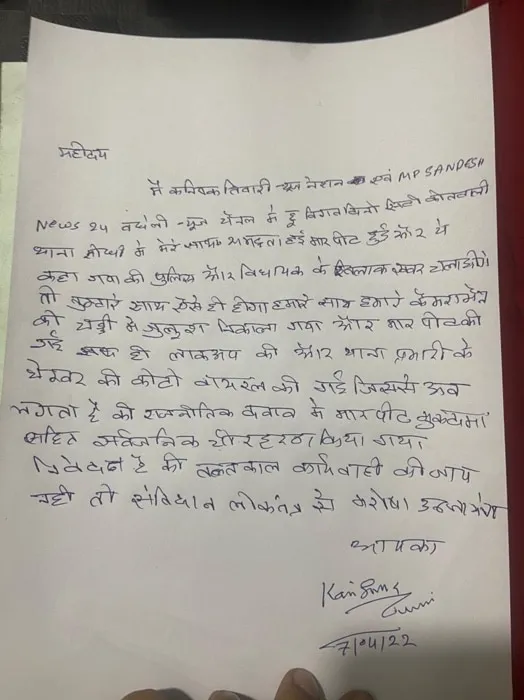 महोदय
मैं कनिष्क तिवारी न्यूज नेशन एवं MP SANDESH
News 24 वघेली न्यूज चैनल में हू विगत दिनो सिटी कोतवाली
थाना सीधी में मेरे साथ अभद्रता हुई मार पीट हुई और ये
कहा गया की पुलिस और विधायक के खिलाक खबर
तो तुम्हारे साथ ऐसे ही होगा हमारे साथ हमारे कैमरामेन
को चड्डी में जुलुश निकाला गया और मार पीट की
गई ही लाकअप की और थाना प्रभारी के
चेम्बर की फोटो वायरल की गई जिससे अब
लगता है की राजनीतिक दबाव में मार पीट मुकदमा
सहित सर्वजनिक चीरहरण किया गया
निवेदन है की ततकाल कार्यवाही की जाय
नही तो संविधान लोकतंत्र से भरोषा उठ जायेगा
आपका
7/04/22